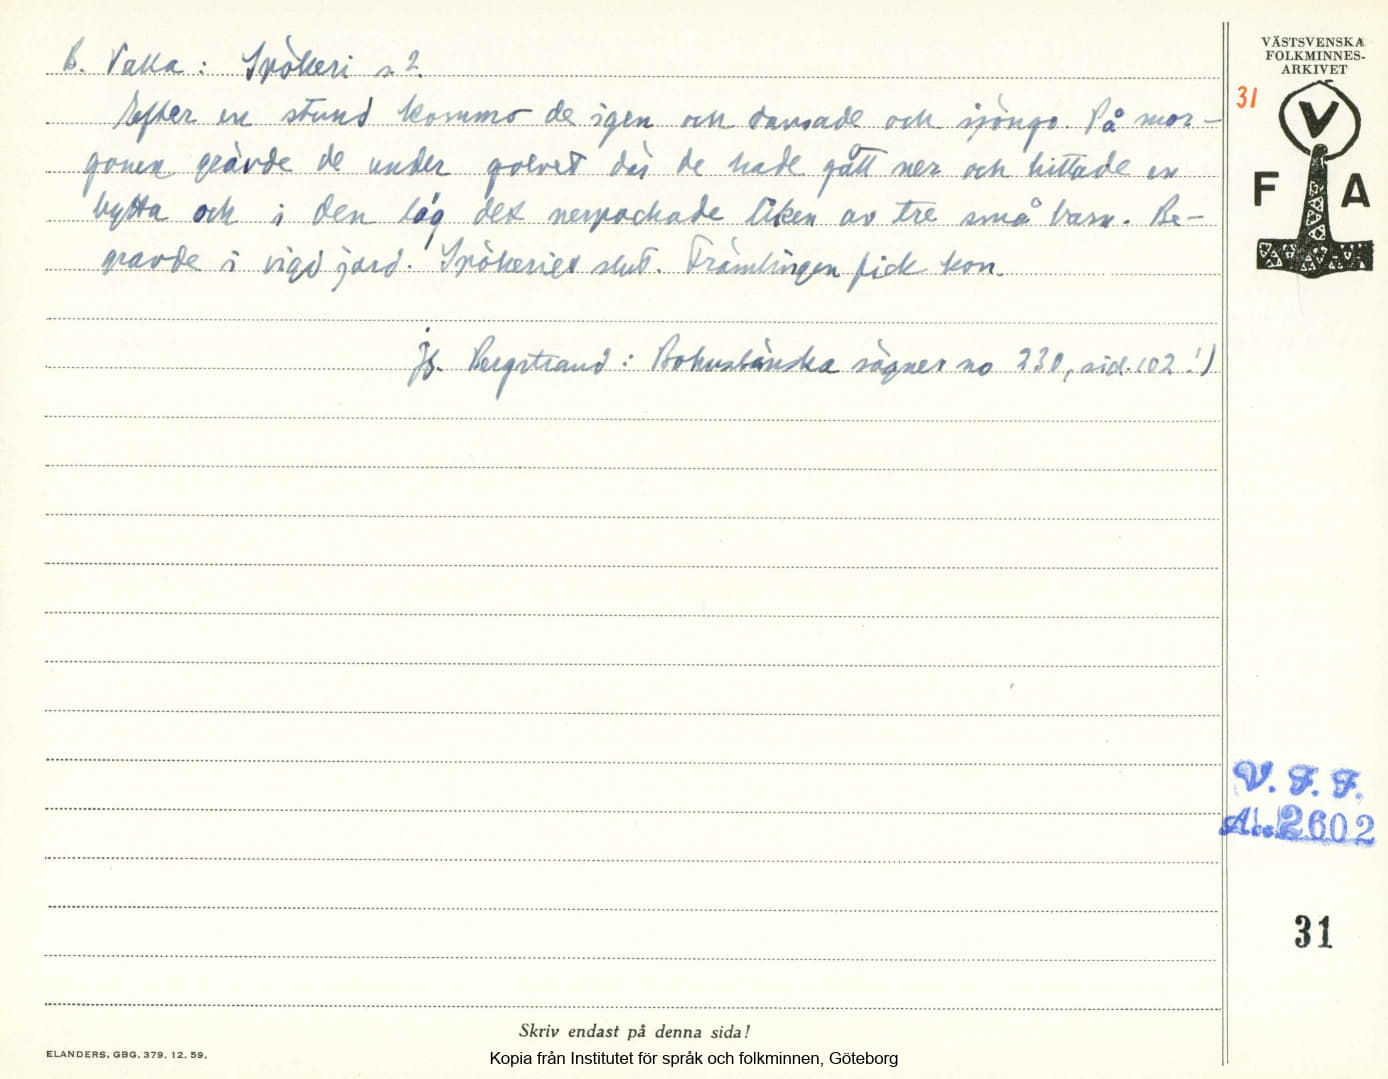 B. Valla: Spökeri s 2.
Efter en stund kommo de igen och dansade och sjöngo. På mor-
gonen grävde de under golvet där de hade gått ner och hittade en
bytta och i den låg det nerpackade liken av tre små barn. Be-
gravde i vigd jord. Spökeriet slut. Främlingen fick kon.
Jfr. Bergstrand: Bohuslänska sägner no 230, sid. 102!)
VÄSTSVENSKA
FOLKMINNES-
ARKIVET
31
V
F A
V. F. F.
Acc. 2602
31
Skriv endast på denna sida!
ELANDERS, GBG. 379. 12. 59.
Kopia från Institutet för språk och folkminnen, Göteborg